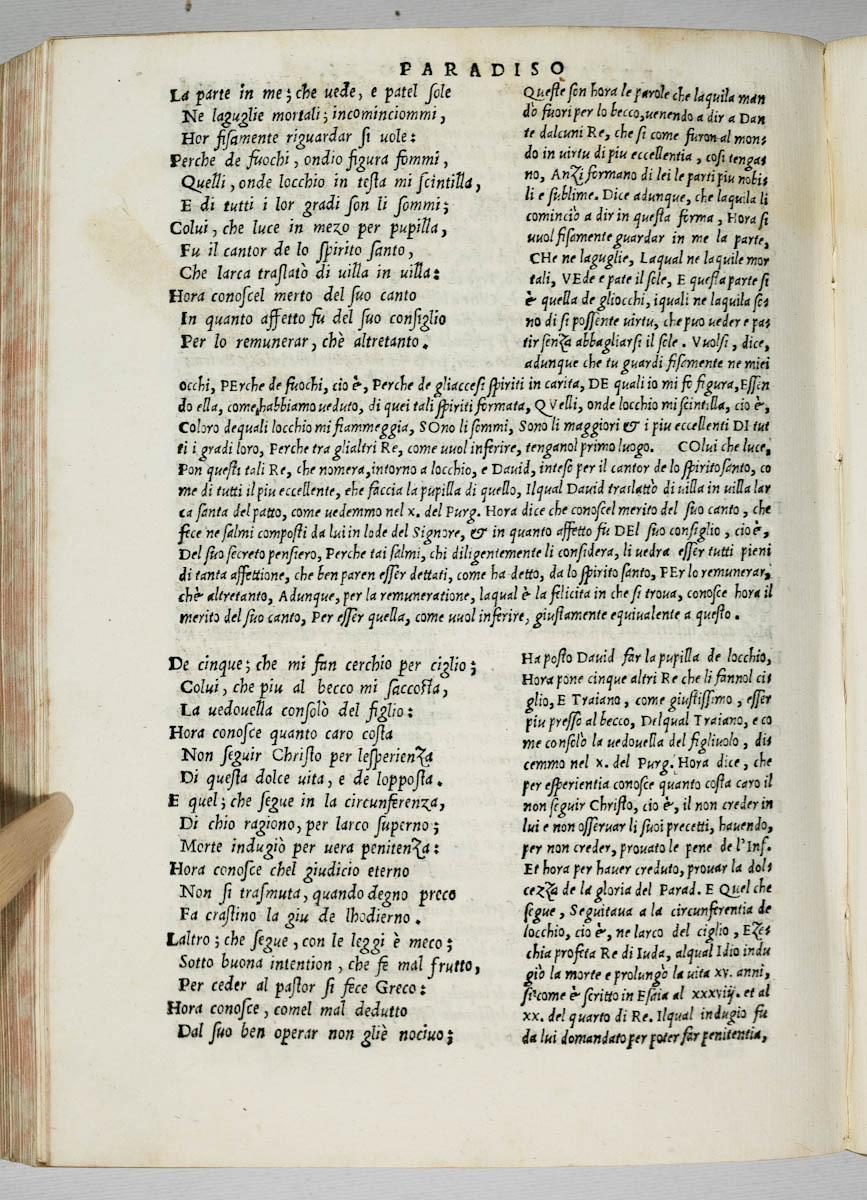 PARADISO
La parte in me; che uede, e patel sole
Ne laguglie mortali; incominciommi,
Hor fisamente riguardar si uole:
Perche de fuochi, ondio figura fommi,
Quelli, onde locchio in testa mi scintilla,
E di tutti i lor gradi son li sommi;
Colui, che luce in mezo per pupilla,
Fu il cantor de lo spirito santo,
Che larca traslatò di uilla in uilla:
Hora conoscel merto del suo canto
In quanto affetto fu del suo consiglio
Per lo remunerar, chè altretanto.
Queste son hora le parole che laquila man
dò fuori per lo becco, uenendo a dir a Dan
te dalcuni Re, che si come furon al mon-
do in uirtu di piu eccellentia, cosi tenga-
no, Anzi formano di lei le parti piu nobi-
li e sublime. Dice adunque, che laquila li
cominciò a dir in questa forma, Hora si
uuol fisamente guardar in me la parte,
CHe ne laguglie, Laqual ne laquile mor
tali, VEde e pate il sole, E questa parte si
è quella de gliocchi, iquali ne laquila so-
no di si possente uirtu, che puo ueder e pa-
tir senza abbagliarsi il sole. Vuolsi, dice,
adunque che tu guardi fisamente ne miei
occhi, PErche de fuochi, cio è, Perche de gliaccesi spiriti in carita, DE quali io mi fo figura, Essen
do ella, come habbiamo ueduto, di quei tali spiriti formata, QVelli, onde locchio mi scintilla, cio è,
Coloro dequali locchio mi fiammeggia, SOno li sommi, Sono li maggiori & i piu eccellenti DI tut
ti i gradi loro, Perche tra glialtri Re, come uuol inferire, tenganol primo luogo. COlui che luce,
Pon questi tali Re, che nomera, intorno a locchio, e Dauid, inteso per il cantor de lo spirito santo, co
me di tutti il piu eccellente, che faccia la pupilla di quello, Ilqual Dauid traslattò di uilla in uilla lar
ca santa del patto, come uedemmo nel x. del Purg. Hora dice che conoscel merito del suo canto, che
fece ne salmi composti da lui in lode del Signore, & in quanto affetto fu DEl suo consiglio, cio è,
Del suo secreto pensiero, Perche tai salmi, chi diligentemente li considera, li uedra esser tutti pieni
di tanta affettione, che ben paren esser dettati, come ha detto, da lo spirito santo, PEr lo remunerar,
chè altretanto, Adunque, per la remuneratione, laqual è la felicita in che si troua, conosce hora il
merito del suo canto, Per esser quella, come uuol inferire, giustamente equiualente a questo.
De cinque; che mi fan cerchio per ciglio;
Colui, che piu al becco mi saccosta,
La uedouella consolò del figlio:
Hora conosce quanto caro costa
Non seguir Christo per lesperienza
Di questa dolce uita, e de lopposta.
E quel; che segue in la circunferenza,
Di chio ragiono, per larco superno;
Morte indugiò per uera penitenza:
Hora conosce chel giudicio eterno
Non si trasmuta, quando degno preco
Fa crastino la giu de lhodierno.
Laltro; che segue, con le leggi è meco;
Sotto buona intention, che fe mal frutto,
Per ceder al pastor si fece Greco:
Hora conosce, comel mal dedutto
Dal suo ben operar non gliè nociuo;
Ha posto Dauid far la pupilla de locchio,
Hora pone cinque altri Re che li fannol ci-
glio, E Traiano, come giustissimo, esser
piu presso al becco, Delqual Traiano, e co
me consolò la uedouella del figliuolo, di-
cemmo nel x. del Purg. Hora dice, che
per esperientia conosce quanto costa caro il
non seguir Christo, cio è, il non creder in
lui e non osseruar li suoi precetti, hauendo,
per non creder, prouato le pene de l'Inf.
Et hora per hauer creduto, prouar la dol-
cezza de la gloria del Parad. E Quel che
segue, Seguitaua a la circunferentia de
locchio, cio è, ne larco del ciglio, Eze-
chia profeta Re di Iuda, alqual Idio indu
giò la morte e prolungò la uita xv. anni,
si come è scritto in Esaia al xxxviij. et al
xx. del quarto di Re. Ilqual indugio fu
da lui domandato per poter far penitentia,